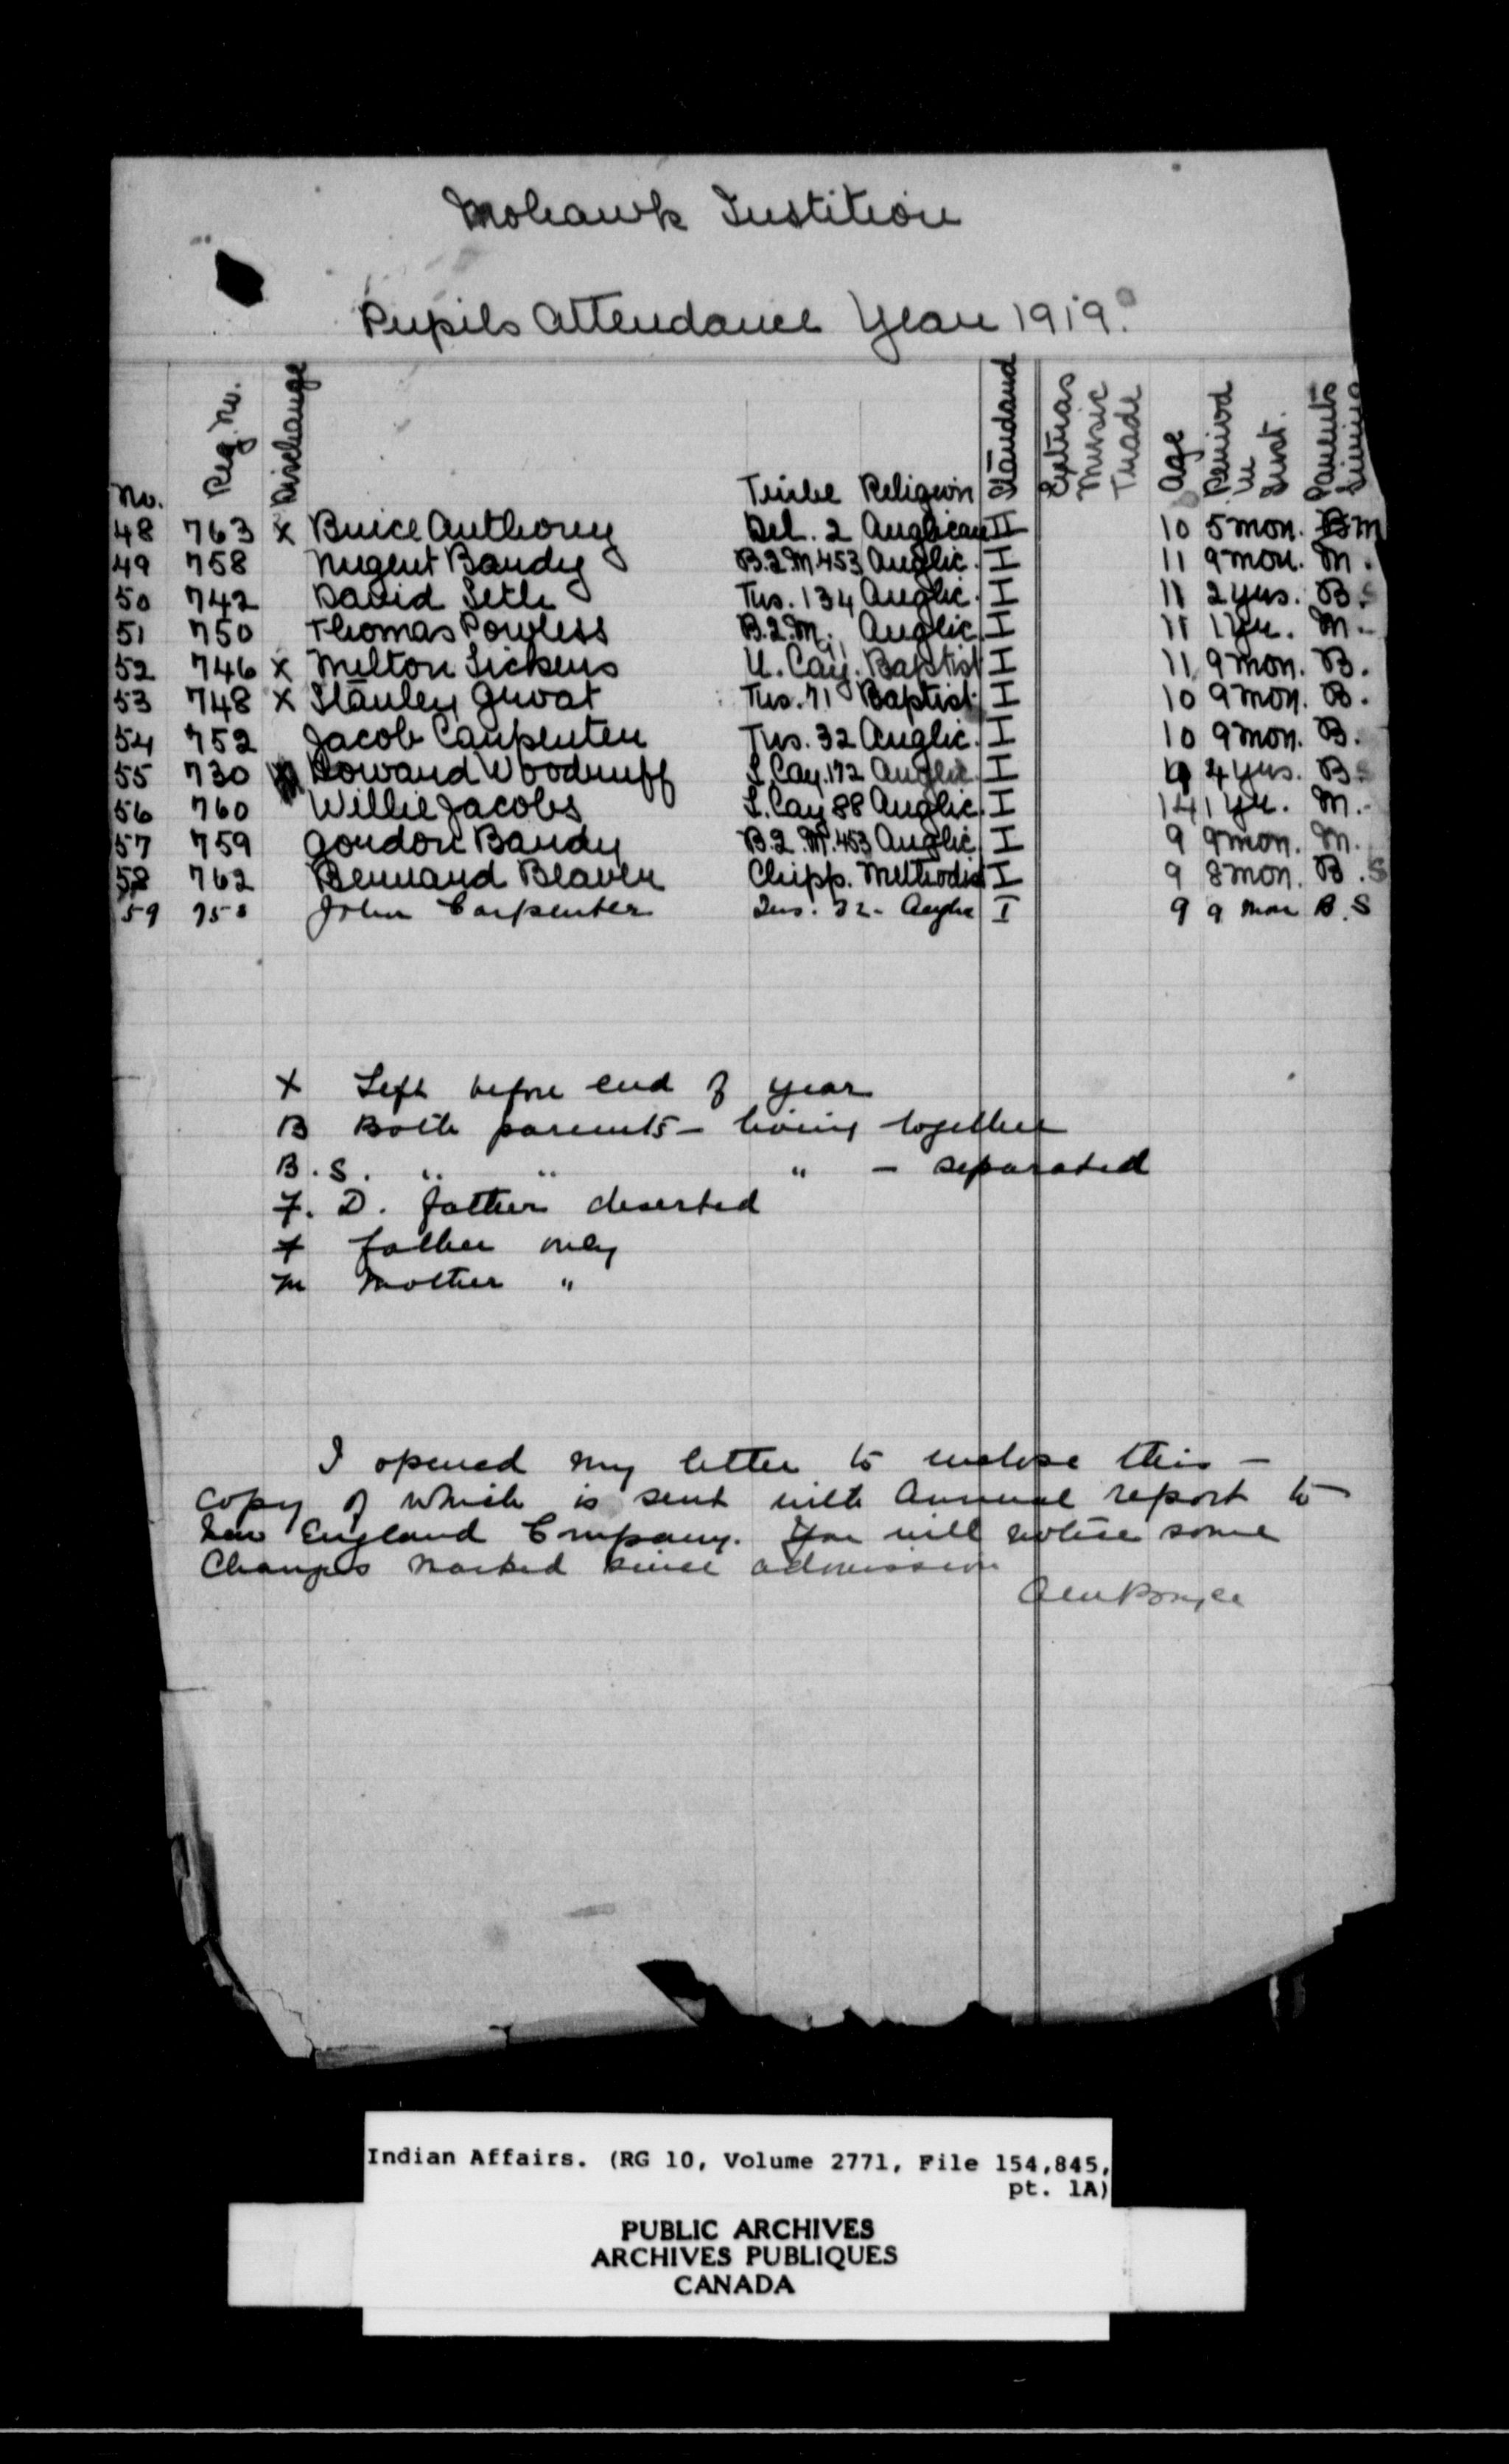 Mohawk Institution
Pupils Attendance Year 1919.
No. Reg. No. Discharge Tribe Religion Standard Extras Music Trade Age Period in Inst. Parents Living
48 763 x Bruce Anthony Del. 2 Anglican II 10 5 mon. B M
49 758 Nugent Bandy B.2.M.453 Anglic. I 11 9 mon. M.
50 742 David Seth Tus. 134 Anglic. I 11 2 yrs. B.S
51 750 Thomas Powless B.2.M. Anglic. I 11 1 yr. M.
52 746 x Milton Sickens U. Cay. Baptist I 11 9 mon. B.
53 748 x Stanley Tus. 71 Baptist. I 10 9 mon. B.
54 752 Jacob Carpenter Tus. 32 Anglic. I 10 9 mon. B.
55 730 Howard Woodruff L. Cay. 172 Anglic. I 4 yrs. B.S
56 760 Willie Jacobs L. Cay 88 Anglic. I 14 1 yr. M.
57 759 Gordon Bandy B.2.M.453 Anglic I 9 9 mon. M.
58 762 Bernard Beaver Chipp. Methodist I 9 8 mon. B.S
59 John Carpenter Tus. 32 - Anglic I 9 9 mon B.S
X Left before end of year
B Both parents - living together
B.S. " " " - separated
F. D. father deserted
F father only
M Mother "
I opened my letter to enclose this -
copy of which is sent with Annual report to
New England Company. You will notice some
Changes marked since admission
Indian Affairs. (RG 10, Volume 2771, File 154,845,
pt. 1A)
PUBLIC ARCHIVES
ARCHIVES PUBLIQUES
CANADA